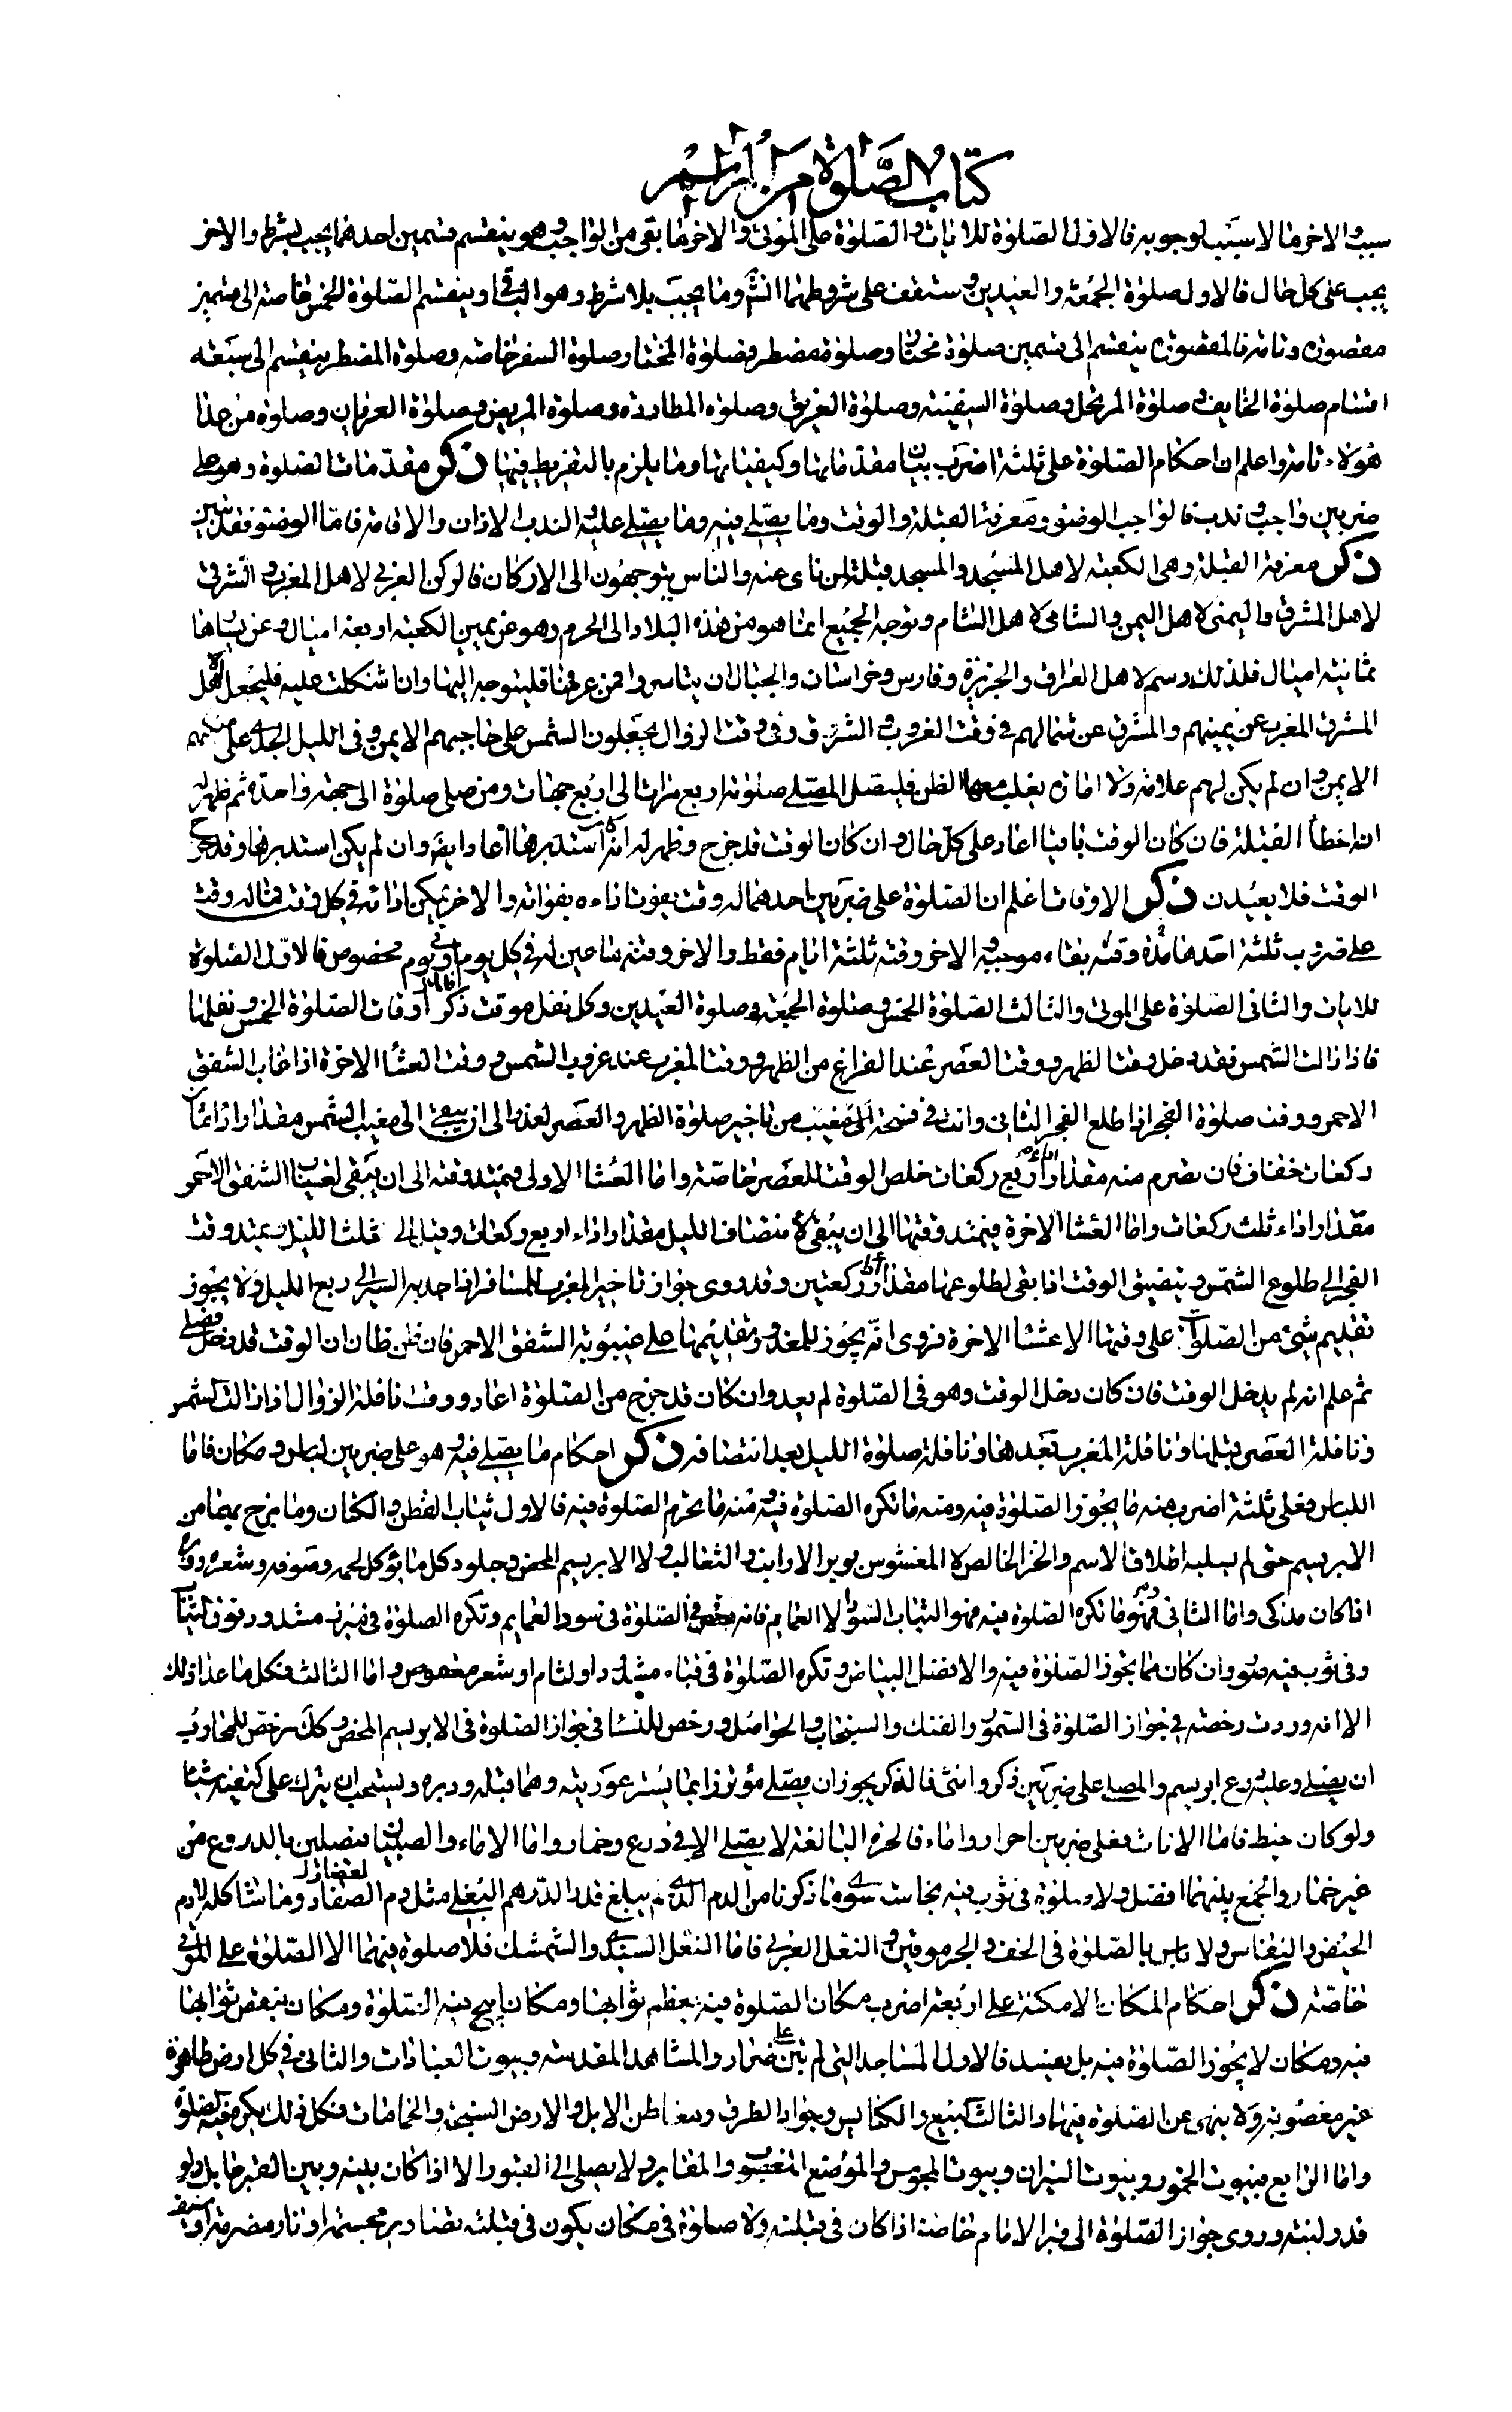 كتاب الصلوة من المراسم
سبب والاخر ما لا سبب لوجوبه فالاول الصلوة للايات والصلوة على الموتى والاخر ما بقى من الواجب وهو ينقسم قسمين احدهما يجب بشرط والاخر
يجب على كل حال فالاول صلوة الجمعة والعيدين وستقف على شروطهما انشا وما يجب بلا شرط وهو الباقى وينقسم الصلوة الخمس خاصة الى قسمين
مقصورة وتامة فالمقصورة ينقسم الى قسمين صلوة مختار وصلوة مضطر فصلوة المختار صلوة السفر خاصه وصلوة المضطر ينقسم الى سبعه
اقسام صلوة الخايف وصلوة المرتحل وصلوة السفينه وصلوة الغريق وصلوه المطارده وصلوة المريض وصلوة العريان وصلوه من عدا
هؤلاء تامة واعلم ان احكام الصلوة على ثلثة اضرب بيان مقدماتها وكيفياتها وما يلزم بالتفريط فيها ذكر مقدمات الصلوة وهو على
ضربين واجب وندب فالواجب الوضوء ومعرفة القبلة والوقت وما يصلى فيه وما يصلى عليه والندب الاذان والاقامة فاما الوضوء فقد بين
ذكر معرفة القبلة وهى الكعبه لاهل المسجد والمسجد قبلة لمن ناى عنه والناس يتوجهون الى الاركان فالركن الغربى لاهل المغرب والشرقى
لاهل المشرق واليمنى لاهل اليمن والشامى لاهل الشام وتوجه الجميع انما هو من هذه البلاد الى الحرم وهو عن يمين الكعبه اربعه اميال وعن يسارها
ثمانيه اميال فلذلك رسم لاهل العراق والجزيرة وفارس وخراسان والجبال ان يتياسروا فمن عرفها فليتوجه اليها وان اشكلت عليه فليجعل اهل
المشرق المغرب عن يمينهم والمشرق عن شمالهم فى وقت الغروب والشرق وفى وقت الزوال يجعلون الشمس على حاجبهم الايمن وفى الليل الجدى على منكبهم
الايمن وان لم يكن لهم علامة ولا امارة يغلب معها الظن فليصل المصلى صلوته اربع مرات الى اربع جهات ومن صلى صلوة الى جهة واحدة ثم ظهر له
انه اخطأ القبلة فان كان الوقت باقيا اعاد على كل حال وان كان الوقت قد خرج وظهر له انه استدبرها اعاد ايضا وان لم يكن استدبرها وقد خرج
الوقت فلا يعيدن ذكر الاوقات اعلم ان الصلوة على ضربين احدهما له وقت يفوت اداءه بفواته والاخر يمكن ادائه فى كل وقت فما له وقت
على ضروب ثلثة احدها مدة وقته بقاء موجبه والاخر وقته ثلثة ايام فقط والاخر وقته ما عين له فى كل يوم او فى يوم مخصوص فالاول الصلوة
للايات والثانى الصلوة على الموتى والثالث الصلوة الخمس وصلوة الجمعة وصلوة العيدين وكل نفل موقت ذكر اوقات الصلوة الخمس ونفلها
فاذا زالت الشمس فقد دخل وقت الظهر ووقت العصر عند الفراغ من الظهر ووقت المغرب عند غروب الشمس ووقت العشا الاخرة اذا غاب الشفق
الاحمر ووقت صلوة الفجر اذا طلع الفجر الثانى وانت فى فسحة من تاخير صلوة الظهر والعصر لعذر الى ان يبقى الى مغيب الشمس مقدار اداء ثمان
ركعات خفاف فان تصرم منه مقدار اداء اربع ركعات خلص الوقت للعصر خاصة واما العشا الاولى فيمتد وقته الى ان يبقى لغياب الشفق الاحمر
مقدار اداء ثلث ركعات واما العشا الاخرة فيمتد وقتها الى ان يبقى لانتصاف الليل مقدار اداء اربع ركعات وقيل الى ثلث الليل ويمتد وقت
الفجر الى طلوع الشمس ويتضيق الوقت اذا بقى لطلوعها مقدار اداء ركعتين وقد روى جواز تاخير المغرب للمسافر اذا جد به السير الى ربع الليل ولا يجوز
تقديم شئ من الصلوات على وقتها الا عشاا الاخرة فروى انه يجوز للمعذور تقديمها على غيبوبة الشفق الاحمر فان ظن ظان ان الوقت قد دخل فصلى
ثم علم انه لم يدخل الوقت فان كان دخل الوقت وهو فى الصلوة لم يعد وان كان قد خرج من الصلوة اعاد ووقت نافلة الزوال اذا زالت الشمس
ونافلة العصر قبلها ونافلة المغرب بعدها ونافلة صلوة الليل بعد انتصافه ذكر احكام ما يصلى فيه وهو على ضربين لباس ومكان فاما
اللباس فعلى ثلثة اضرب منه ما يجوز الصلوة فيه ومنه ما تكره الصلوة فيه ومنه ما تحرم الصلوة فيه فالاول ثياب القطن والكتان وما مزج بهما من
الابريسم حتى لم يسلبه اطلاق الاسم والخز الخالص لا المغشوش بوبر الارانب والثعالب ولا الابريسم المحض وجلود كل ما يؤكل لحمه وصوفه وشعره ووبره
اذا كان مذكى واما الثانى فهو ما تكره الصلوة فيه فهو الثياب السود الا العمايم فانه رخص فى الصلوة فى سود العمايم وتكره الصلوة فى ميزر مشدود فوق الثياب
وفى ثوب فيه صور وان كان مما يجوز الصلوة فيه والافضل البياض وتكره الصلوة فى قباء مشدود او لثام او شعر معقوص واما الثالث فكل ما عدا ذلك
الا انه وردت رخصة فى جواز الصلوة فى السمور والفنك والسنجاب والحواصل ورخص للنسا فى جواز الصلوة فى الابريسم المحض وكك رخص للمحارب
ان يصلى وعليه درع ابريسم والمصلى على ضربين ذكر وانثى فالذكر يجوز ان يصلى مؤتزرا بما يستر عورتيه وهما قبله ودبره ويستحب ان يترك على كتفيه شيئا
ولو كان خيط فاما الاناث فعلى ضربين احرار واماء فالحرة البالغة لا يصلى الا فى درع وخمار واما الاماء والصبيان فيصلين بالدروع من
غير خمار والجمع بينهما افضل ولا صلوة فى ثوب فيه نجاسة سوى ما ذكرنا من الدم الذى لم يبلغ قدر الدرهم البغلى مثل دم الفصاد وما شاكله لا دم
الحيض والنفاس ولا باس بالصلوة فى الخف والجرموقين والنعل العربى فاما النعل السندى والشمشك فلا صلوة فيهما الا الصلوة على الموتى
خاصة ذكر احكام المكان الامكنة على اربعة اضرب مكان الصلوة فيه يعظم ثوابها ومكان ابيح فيه الصلوة ومكان ينقص ثوابها
فيه ومكان لا يجوز الصلوة فيه بل يفسد فالاول المساجد التى لم تبن على ضرار والمشاهد المقدسه وبيوت العبادات والثانى فى كل ارض طاهرة
غير مغصوبة ولا ينهى عن الصلوة فيها والثالث كالبيع والكنايس وجواد الطرق ومعاطن الابل والارض السبخة والحمامات فكل ذلك يكره فيه الصلوة
واما الرابع فبيوت الخمور وبيوت النيران وبيوت المجوس والموضع المغصوب والمقابر ولا يصلى الى القبور الا اذا كان بينه وبين القبر حايل ولو
قدر لبنه وروى جواز الصلوة الى قبر الامام خاصة اذا كان فى قبلته ولا صلوة فى مكان يكون فى قبلته تصاوير مجسمة او نار مضرمة او سيف